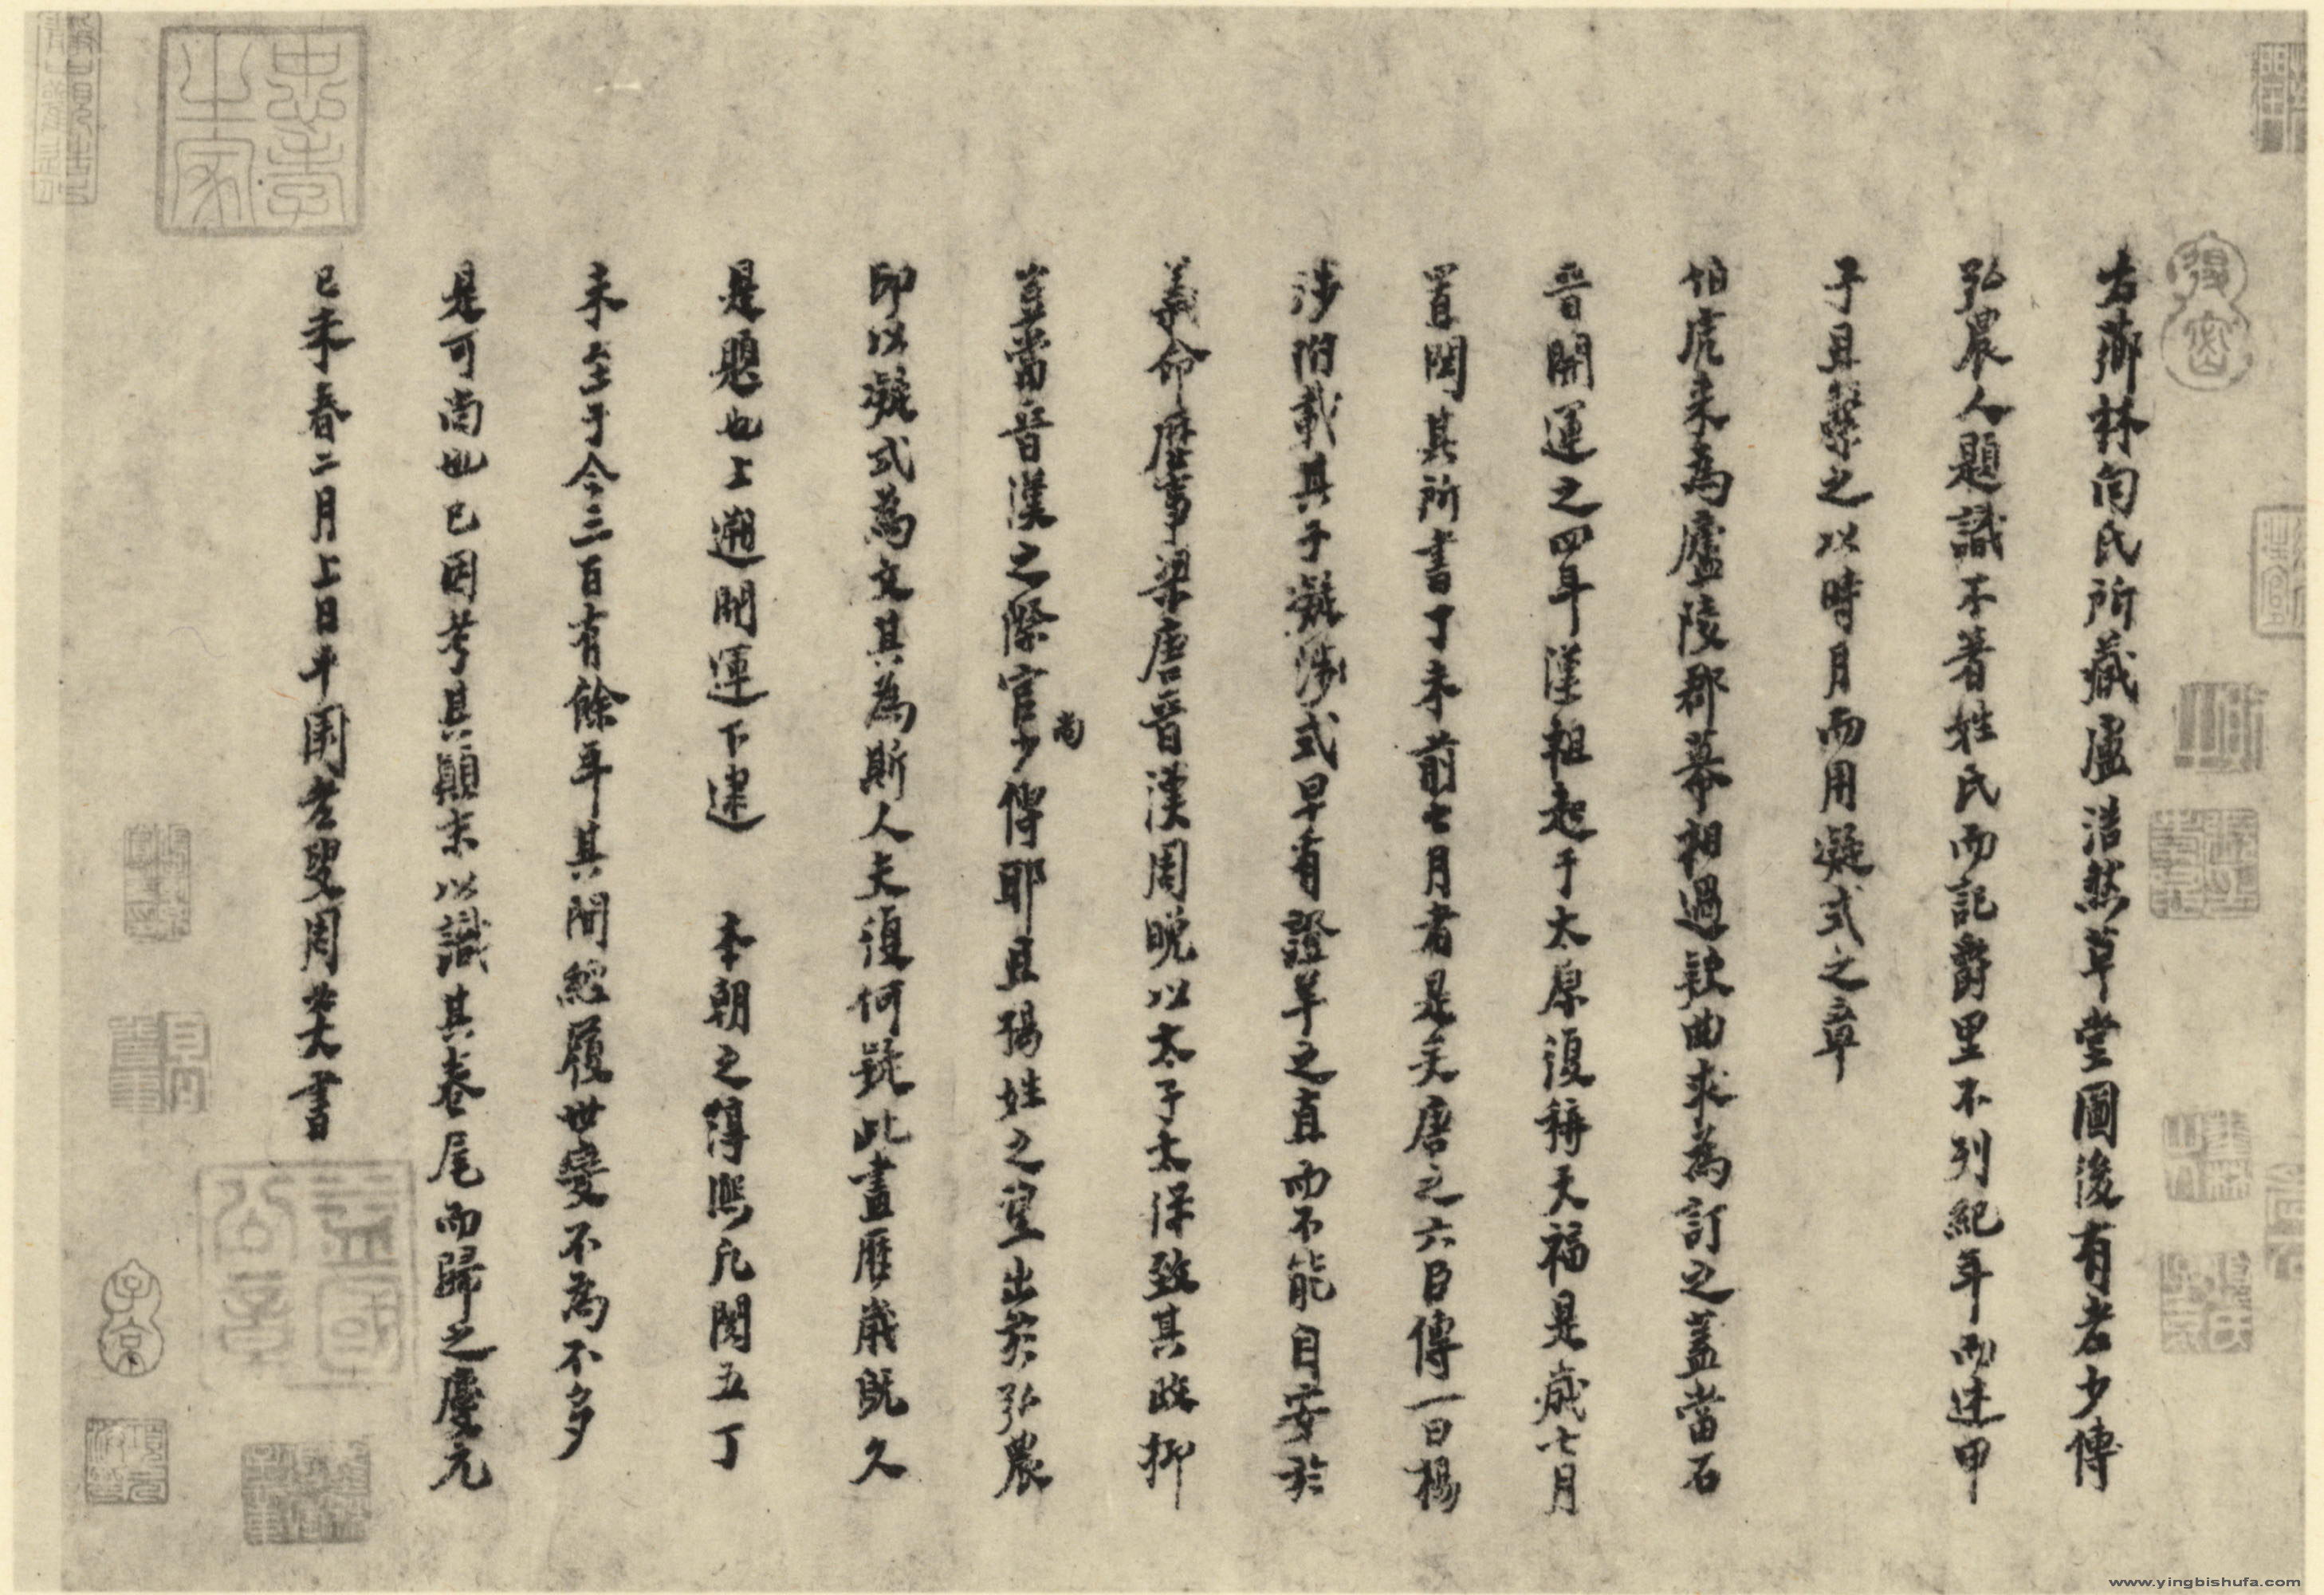 右薌林向氏所藏盧浩然草堂圖後有者少傅
弘農人題識不著姓氏而記爵里不列紀年而述甲
子且繫之以時月而用凝式之章
伯虎来為廬陵郡幕相過款曲求為訂之蓋當石
晉開運之四年漢祖起于太原復稱天福是歲七月
置閏其所書丁未前七月者是矣唐之六臣傳一曰楊
涉附載其子凝涉式早有證羊之直而不能自安於
義命歷事梁唐晉漢周晚以太子太保致其政抑
豈當晉漢之際官少傅耶且楊姓之望出於弘農
尚
印以凝式為文其為斯人夫復何疑此畫歷歲既久
是題也上遡開運下逮 本朝之淳熙凡閱五丁
未至于今三百有餘年其間綿履世變不為不多
是可尚也已因考其顛末以識其卷尾而歸之慶元
己未春二月上日平園老叟周必大書
忠孝之家
益國公章
子京
www.yingbishufa.com